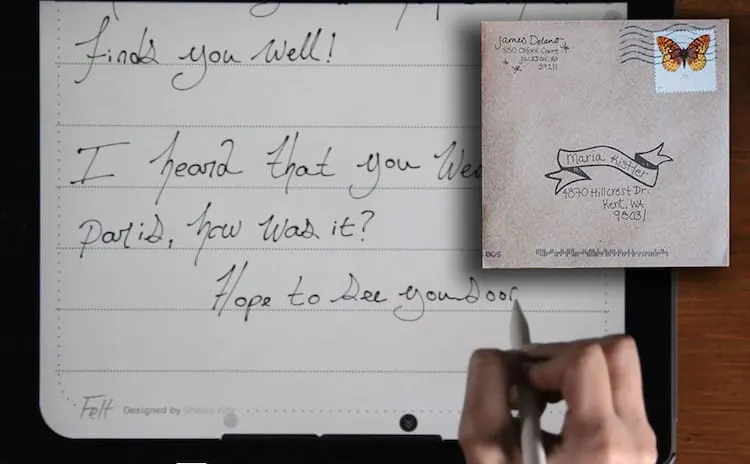 finds you well!
I heard that you
Paris, how was it?
Hope to see you soo
Felt Designed by
James
350 Oxford Court
39211
Maria
4870 Hillcrest Dr.
Kent, WA
98031